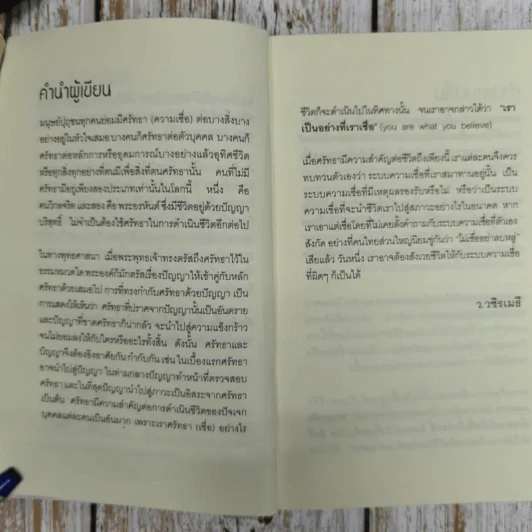 คำนำผู้เขียน
มนุษย์ปุถุชนทุกคนย่อมมีศรัทธา (ความเชื่อ) ต่อบางสิ่งบาง
อย่างอยู่ในหัวใจเสมอ บางคนก็ศรัทธาต่อตัวบุคคล บางคนก็
ศรัทธาต่อหลักการหรืออุดมการณ์บางอย่างแล้วอุทิศชีวิต
หรือทุกสิ่งทุกอย่างที่ตนมีเพื่อสิ่งที่ตนศรัทธานั้น คนที่ไม่มี
ศรัทธามีอยู่เพียงสองประเภทเท่านั้นในโลกนี้ หนึ่ง คือ
คนวิกลจริต และสอง คือ พระอรหันต์ ซึ่งมีชีวิตอยู่ด้วยปัญญา
บริสุทธิ์ ไม่จำเป็นต้องใช้ศรัทธาในการดำเนินชีวิตอีกต่อไป
ในทางพุทธศาสนา เมื่อพระพุทธเจ้าทรงตรัสถึงศรัทธาไว้ใน
ธรรมหมวดใด พระองค์ก็มักตรัสเรื่องปัญญาให้เข้าคู่กับหลัก
ศรัทธาด้วยเสมอไป การที่ทรงกำกับศรัทธาด้วยปัญญา เป็น
การแสดงให้เห็นว่า ศรัทธาที่ปราศจากปัญญานั้นเป็นอันตราย
และปัญญาที่ขาดศรัทธาก็น่ากลัว จะนำไปสู่ความแข็งกร้าว
จนไม่ยอมลงให้กับใครหรืออะไรทั้งสิ้น ดังนั้น ศรัทธาและ
ปัญญาจึงต้องอิงอาศัยกัน กำกับกัน เช่น ในเบื้องแรกศรัทธา
อาจนำไปสู่ปัญญา ในท่ามกลางปัญญาทำหน้าที่ตรวจสอบ
ศรัทธา และในที่สุดปัญญานำไปสู่ภาวะเป็นอิสระจากศรัทธา
เป็นต้น ศรัทธามีความสำคัญต่อการดำเนินชีวิตของปัจเจก
บุคคลแต่ละคนเป็นอันมาก เพราะเราศรัทธา (เชื่อ) อย่างไร
ชีวิตก็จะดำเนินไปในทิศทางนั้น จนเราอาจกล่าวได้ว่า "เรา
เป็นอย่างที่เราเชื่อ" (you are what you believe)
เมื่อศรัทธามีความสำคัญต่อชีวิตถึงเพียงนี้ เราแต่ละคนจึงควร
ทบทวนตัวเองว่า ระบบความเชื่อที่เราสมาทานอยู่นั้น เป็น
ระบบความเชื่อที่มีเหตุผลรองรับหรือไม่ หรือว่าเป็นระบบ
ความเชื่อที่จะนำชีวิตเราไปสู่สภาวะอย่างไรในอนาคต หาก
เราเอาแต่เชื่อโดยที่ไม่เคยตั้งคำถามกับระบบความเชื่อที่ตัวเอง
สังกัด อย่างที่คนไทยส่วนใหญ่นิยมขู่กันว่า "ไม่เชื่ออย่าลบหลู่"
เสียแล้ว วันหนึ่ง เราอาจต้องสังเวยชีวิตให้กับระบบความเชื่อ
ที่ผิดๆ ก็เป็นได้
ว.วชิรเมธี